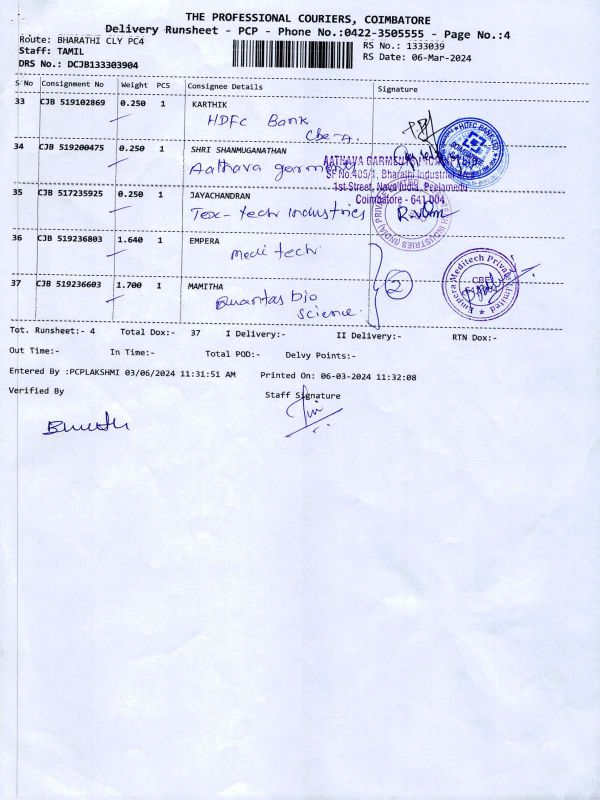 THE PROFESSIONAL COURIERS, COIMBATORE
Delivery Runsheet - PCP - Phone No.:0422-3505555 - Page No.:4
Route: BHARATHI CLY PC4
RS No.: 1333039
Staff: TAMIL
RS Date: 06-Mar-2024
DRS No.: DCJB133303904
S No Consignment No Weight PCS Consignee Details Signature
33 CJB 519102869 0.250 1 KARTHIK
HDFC Bank
Cbe-
34 CJB 519200475 0.250 1 SHRI SHANMUGANATHAN
Aathava garments
AATHAVA GARMENT
SF No.405/1, Bharathi Industrial
1st Street, Nava India, Peelamedu
Coimbatore - 641 004
HDFC BANK LTD
35 CJB 517235925 0.250 1 JAYACHANDRAN
Tex-tech Industries
INDUSTRIES (INDIA) PRIVATE
36 CJB 519236803 1.640 1 EMPERA
Medi tech
2
Empera Meditech Private Limited
CBE
37 CJB 519236603 1.700 1 MAMITHA
Quantas bio
science
Tot. Runsheet:- 4 Total Dox:- 37 I Delivery:- II Delivery:- RTN Dox:-
Out Time:- In Time:- Total POD:- Delvy Points:-
Entered By :PCPLAKSHMI 03/06/2024 11:31:51 AM Printed On: 06-03-2024 11:32:08
Verified By Staff Signature